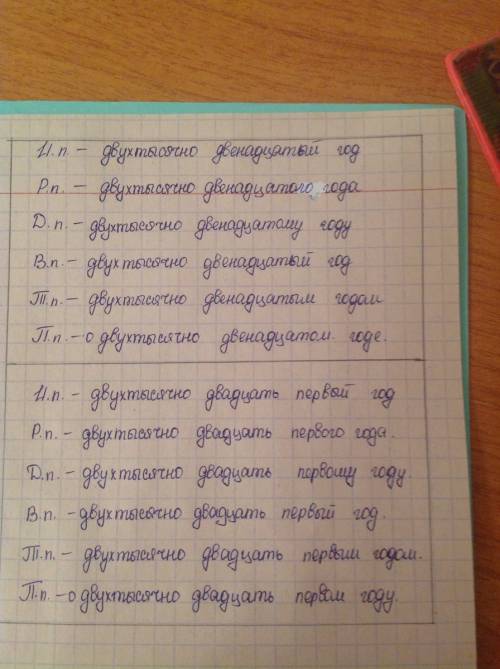 И.п. – двухтысячно двенадцатый год
Р.п. – двухтысячно двенадцатого года
Д.п. – двухтысячно двенадцатому году
В.п. – двухтысячно двенадцатый год
Т.п. – двухтысячно двенадцатым годом
П.п. – о двухтысячно двенадцатом годе.
И.п. – двухтысячно двадцать первый год
Р.п. – двухтысячно двадцать первого года.
Д.п. – двухтысячно двадцать первому году.
В.п. – двухтысячно двадцать первый год.
Т.п. – двухтысячно двадцать первым годом.
П.п. – о двухтысячно двадцать первом году.